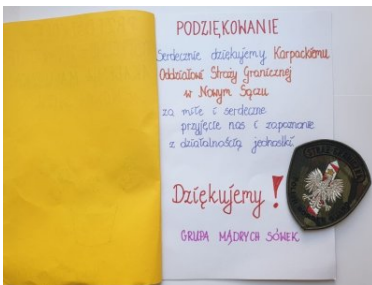 PODZIĘKOWANIE
Serdecznie dziękujemy Karpackiemu
Oddziałowi Straży Granicznej
w Nowym Sączu
za miłe i serdeczne
przyjęcie nas i zapoznanie
z działalnością jednostki
Dziękujemy!
GRUPA MĄDRYCH SÓWEK